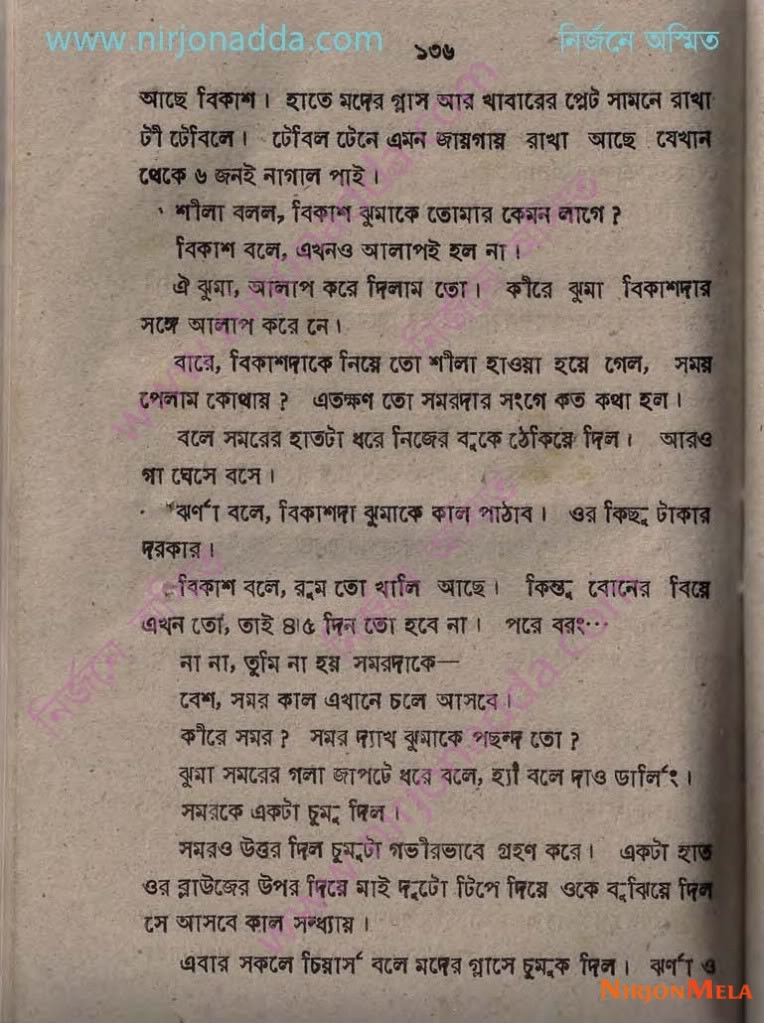 www.nirjonadda.com
১৩৬
নির্জনে অস্মিত
আছে বিকাশ। হাতে মদের গ্লাস আর খাবারের প্লেট সামনে রাখা
টী টেবিলে। টেবিল টেনে এমন জায়গায় রাখা আছে যেখান
থেকে ৬ জনই নাগাল পাই।
শীলা বলল, বিকাশ ঝুমাকে তোমার কেমন লাগে?
বিকাশ বলে, এখনও আলাপই হল না।
ঐ ঝুমা, আলাপ করে দিলাম তো। কীরে ঝুমা বিকাশদার
সঙ্গে আলাপ করে নে।
বারে, বিকাশদাকে নিয়ে তো শীলা হাওয়া হয়ে গেল, সময়
পেলাম কোথায়? এতক্ষণ তো সমরদার সংগে কত কথা হল।
বলে সমরের হাতটা ধরে নিজের বুকে ঠেকিয়ে দিল। আরও
গা ঘেসে বসে।
ঝর্ণা বলে, বিকাশদা ঝুমাকে কাল পাঠাব। ওর কিছু টাকার
দরকার।
বিকাশ বলে, রুম তো খালি আছে। কিন্তু বোনের বিয়ে
এখন তো, তাই ৪।৫ দিন তো হবে না। পরে বরং…
না না, তুমি না হয় সমরদাকে—
বেশ, সমর কাল এখানে চলে আসবে।
কীরে সমর? সমর দ্যাখ ঝুমাকে পছন্দ তো?
ঝুমা সমরের গলা জাপটে ধরে বলে, হ্যাঁ বলে দাও ডার্লিং।
সমরকে একটা চুমু দিল।
সমরও উত্তর দিল চুমুটা গভীরভাবে গ্রহণ করে। একটা হাত
ওর ব্লাউজের উপর দিয়ে মাই দুটো টিপে দিয়ে ওকে বুঝিয়ে দিল
সে আসবে কাল সন্ধ্যায়।
এবার সকলে চিয়ার্স বলে মদের গ্লাসে চুমুক দিল। ঝর্ণা ও
NIRJONMELA